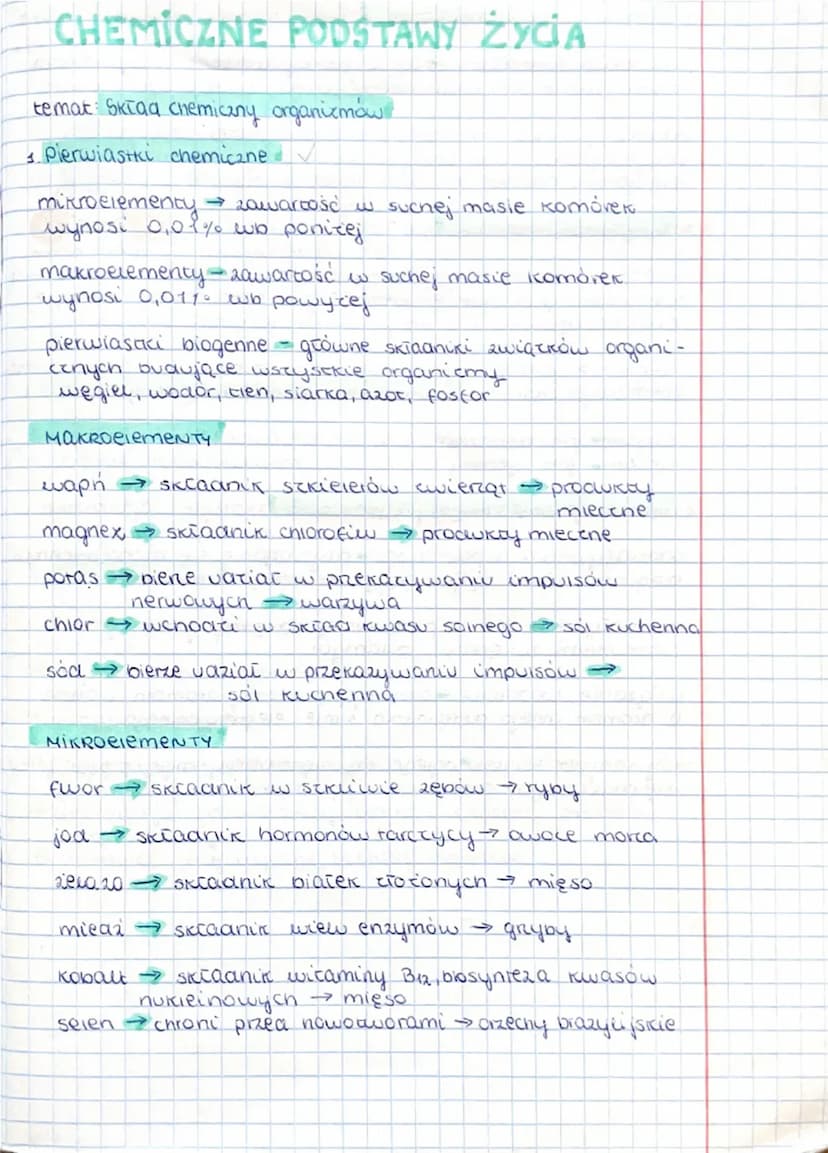 CHEMICZNE PODSTAWY ŻYCIA
temat: Skład chemiczny organizmów
1. Pierwiastki chemiczne ✓
mikroelementy → zawartość w suchej masie komórek
wynosi 0,01% lub poniżej
makroelementy - zawartość w suchej masie komórek
wynosi 0,01% lub powyżej
pierwiastki biogenne - główne składniki związków organi-
cznych budujące wszystkie organizmy
węgiel, wodór, tlen, siarka, azot, fosfor
MAKROelemenTY
wapń → składnik szkieletów zwierząt → produkty
mleczne
magnez → składnik chlorofilu → produkty mleczne
potas → bierze udział w przekazywaniu impulsów
nerwowych → warzywa
chlor → wchodzi w skład kwasu solnego → sól kuchenna
sód → bierze udział w przekazywaniu impulsów →
sól kuchenna
MIKROelemenTY
fluor → składnik w szkliwie zębów → ryby
jod → składnik hormonów tarczycy → owoce morza
żelazo → składnik białek złożonych → mięso
miedź → składnik wielu enzymów → grzyby
kobalt → składnik witaminy B12, biosynteza kwasów
nukleinowych → mięso
selen → chroni przed nowotworami → orzechy brazylijskie